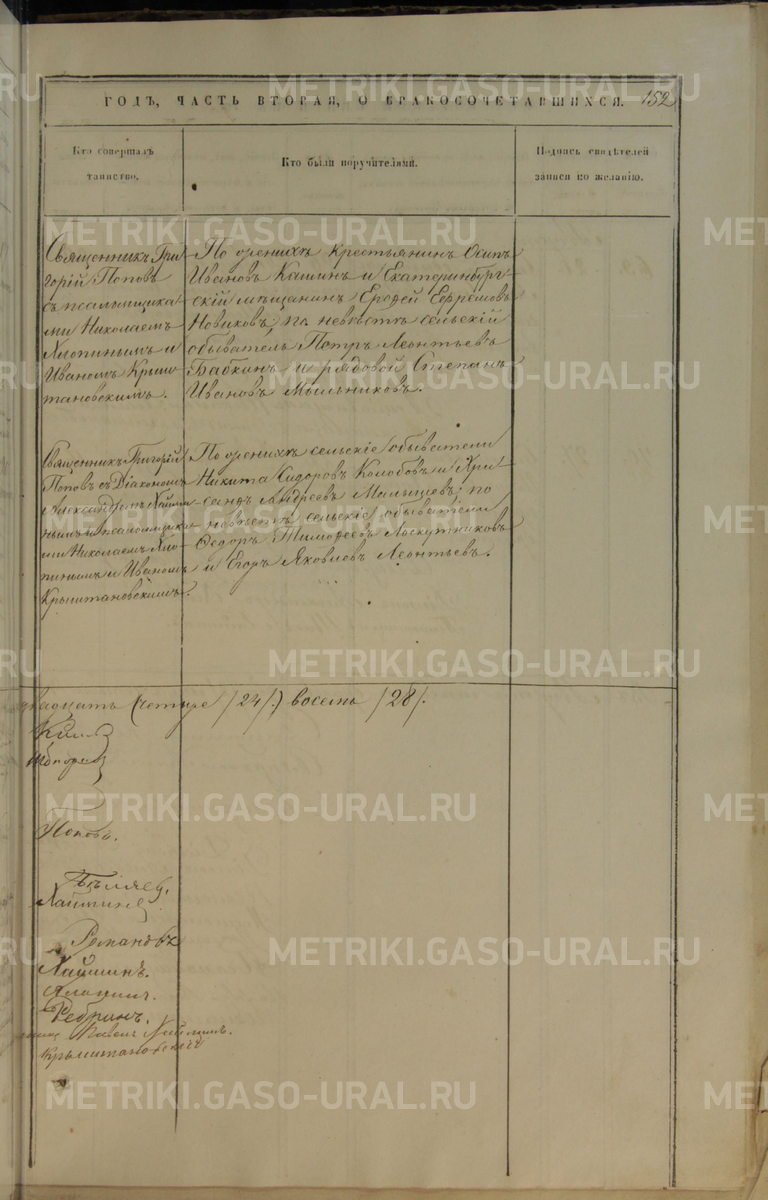 ГОДЪ, ЧАСТЬ ВТОРАЯ, О БРАКОСОЧЕТАВШИХСЯ. 152
Кто совершалъ
таинство.
Кто были поручителями.
Подпись свидѣтелей
записи по желанію.
Священникъ Гри-
горій Поповъ
съ псаломщика-
ми Николаемъ
Хлопинымъ и
Иваномъ Крыш-
тановскимъ.
По женихѣ крестьянинъ Осипъ
Ивановъ Кашинъ и Екатеринбург-
скій мѣщанинъ Ерофей Ефремовъ
Новиковъ; по невѣстѣ сельскій
обыватель Петръ Леонтьевъ
Бабкинъ и рядовой Степанъ
Ивановъ Мыльниковъ.
Священникъ Григорій
Поповъ съ Діакономъ
Александромъ
нымъ и псаломщика-
ми Николаемъ Хло-
пинымъ и Иваномъ
Крыштановскимъ.
По женихѣ сельскіе обыватели
Никита Сидоровъ Колобовъ и Хри-
санфъ Андреевъ Малышевъ; по
невѣстѣ сельскіе обыватели
Федоръ Тимофеевъ Лоскутниковъ
и Егоръ Яковлевъ Леонтьевъ.
двадцать четыре /24/.) восемь /28/.
Поповъ.
Романовъ
METRIKI.GASO-URAL.RU